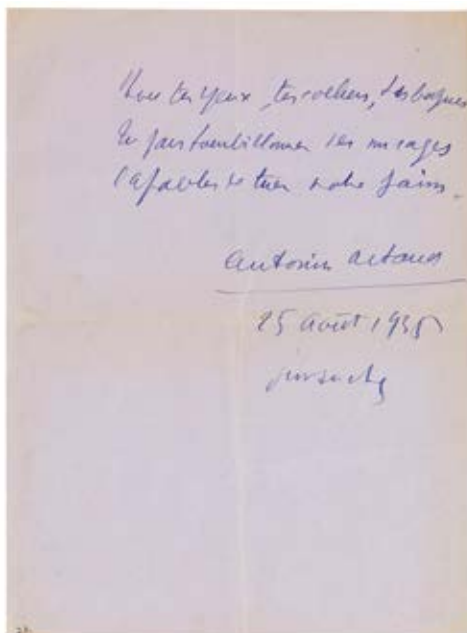 tes yeux, tes colliers, tes bagues
Tu fais tourbillonner
Capables de tuer notre faim.
Antonin Artaud
25 août